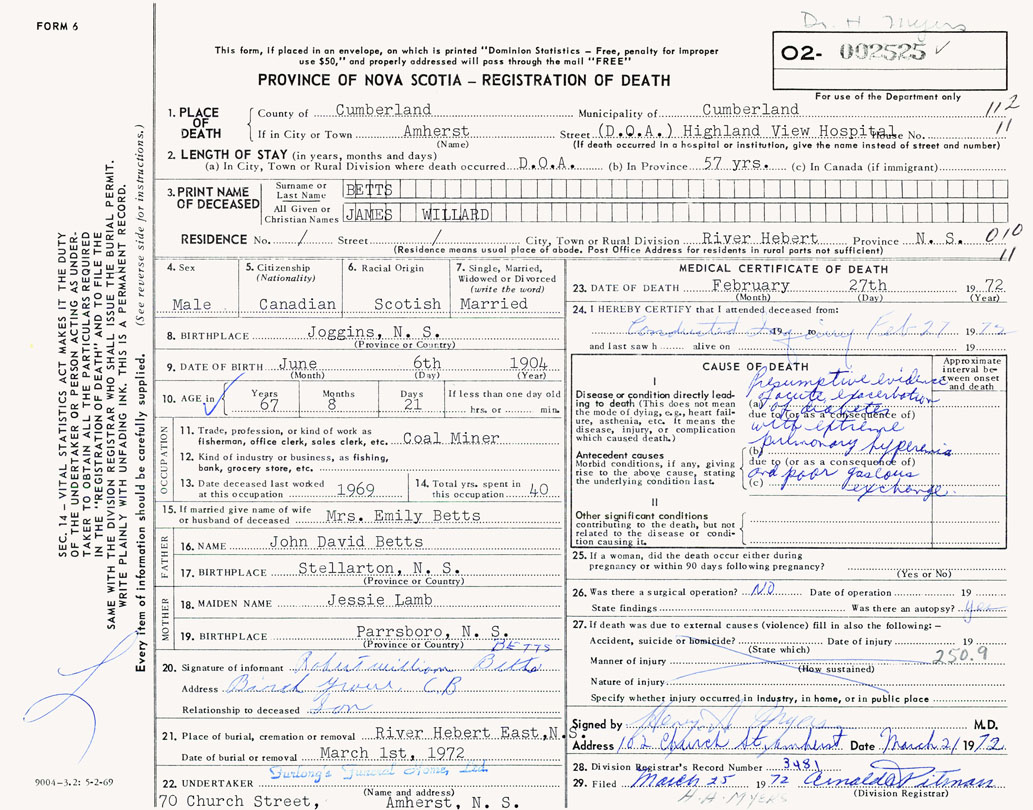 FORM 6
Dr. H. Myers
This form, if placed in an envelope, on which is printed "Dominion Statistics – Free, penalty for improper
use $50," and properly addressed will pass through the mail "FREE"
O2- 002525 ✓
PROVINCE OF NOVA SCOTIA – REGISTRATION OF DEATH
For use of the Department only
1. PLACE OF DEATH
County of Cumberland Municipality of Cumberland 112
If in City or Town Amherst Street (D.O.A.) Highland View Hospital House No. 11
(Name) (If death occurred in a hospital or institution, give the name instead of street and number)
2. LENGTH OF STAY (in years, months and days)
(a) In City, Town or Rural Division where death occurred D.O.A. (b) In Province 57 yrs. (c) In Canada (if immigrant)
3. PRINT NAME OF DECEASED
Surname or Last Name BETTS
All Given or Christian Names JAMES WILLARD
RESIDENCE No. / Street / City, Town or Rural Division River Hebert Province N. S. 010
(Residence means usual place of abode. Post Office Address for residents in rural parts not sufficient) 11
4. Sex
Male
5. Citizenship
(Nationality)
Canadian
6. Racial Origin
Scotish
7. Single, Married,
Widowed or Divorced
(write the word)
Married
8. BIRTHPLACE Joggins, N. S.
(Province or Country)
9. DATE OF BIRTH June 6th 1904
(Month) (Day) (Year)
10. AGE in ✓ Years Months Days If less than one day old
67 8 21 hrs. or min.
OCCUPATION
11. Trade, profession, or kind of work as
fisherman, office clerk, sales clerk, etc. Coal Miner
12. Kind of industry or business, as fishing,
bank, grocery store, etc.
13. Date deceased last worked
at this occupation 1969
14. Total yrs. spent in
this occupation 40
15. If married give name of wife
or husband of deceased Mrs. Emily Betts
FATHER
16. NAME John David Betts
17. BIRTHPLACE Stellarton, N. S.
(Province or Country)
MOTHER
18. MAIDEN NAME Jessie Lamb
19. BIRTHPLACE Parrsboro, N. S.
(Province or Country) BETTS
20. Signature of informant Robert William Betts
Address Birch Grove, C.B
Relationship to deceased Son
21. Place of burial, cremation or removal River Hebert East, N.S.
Date of burial or removal March 1st, 1972
Furlong's Funeral Home, Ltd.
22. UNDERTAKER
(Name and address)
70 Church Street, Amherst, N. S.
MEDICAL CERTIFICATE OF DEATH
23. DATE OF DEATH February 27th 19 72
(Month) (Day) (Year)
24. I HEREBY CERTIFY that I attended deceased from:
Conducted 19 to Feb 27 19 72
and last saw h alive on 19
CAUSE OF DEATH
Approximate interval between onset and death
I
Disease or condition directly leading to death (This does not mean the mode of dying, e.g., heart failure, asthenia, etc. it means the disease, injury, or complication which caused death.)
Presumptive evidence
(a) of acute exacerbation
of diabetes
due to (or as a consequence of)
with extreme
(b) pulmonary hyperemia
Antecedent causes
Morbid conditions, if any, giving rise to the above cause, stating the underlying condition last.
due to (or as a consequence of)
(c) and poor gaseous
exchange.
II
Other significant conditions
contributing to the death, but not related to the disease or condition causing it.
25. If a woman, did the death occur either during
pregnancy or within 90 days following pregnancy?
(Yes or No)
26. Was there a surgical operation? NO Date of operation 19
State findings Was there an autopsy? Yes
27. If death was due to external causes (violence) fill in also the following: –
Accident, suicide or homicide? Date of injury 19
(State which) 250.9
Manner of injury
(How sustained)
Nature of injury
Specify whether injury occurred in Industry, in home, or in public place
Signed by Henry H Myers M.D.
Address 102 Church St, Amherst Date March 21 19 72
28. Division Registrar's Record Number 3481
29. Filed March 25 19 72 Arnold Pitman
H. H. MYERS (Division Registrar)
SEC. 14 – VITAL STATISTICS ACT MAKES IT THE DUTY
OF THE UNDERTAKER OR PERSON ACTING AS UNDER-
TAKER TO OBTAIN ALL THE PARTICULARS REQUIRED
IN THE "REGISTRATION OF DEATH" AND TO FILE THE
SAME WITH THE DIVISION REGISTRAR WHO SHALL ISSUE THE BURIAL PERMIT.
WRITE PLAINLY WITH UNFADING INK. THIS IS A PERMANENT RECORD.
Every item of information should be carefully supplied. (See reverse side for instructions.)
9004-3.2: 5-2-69